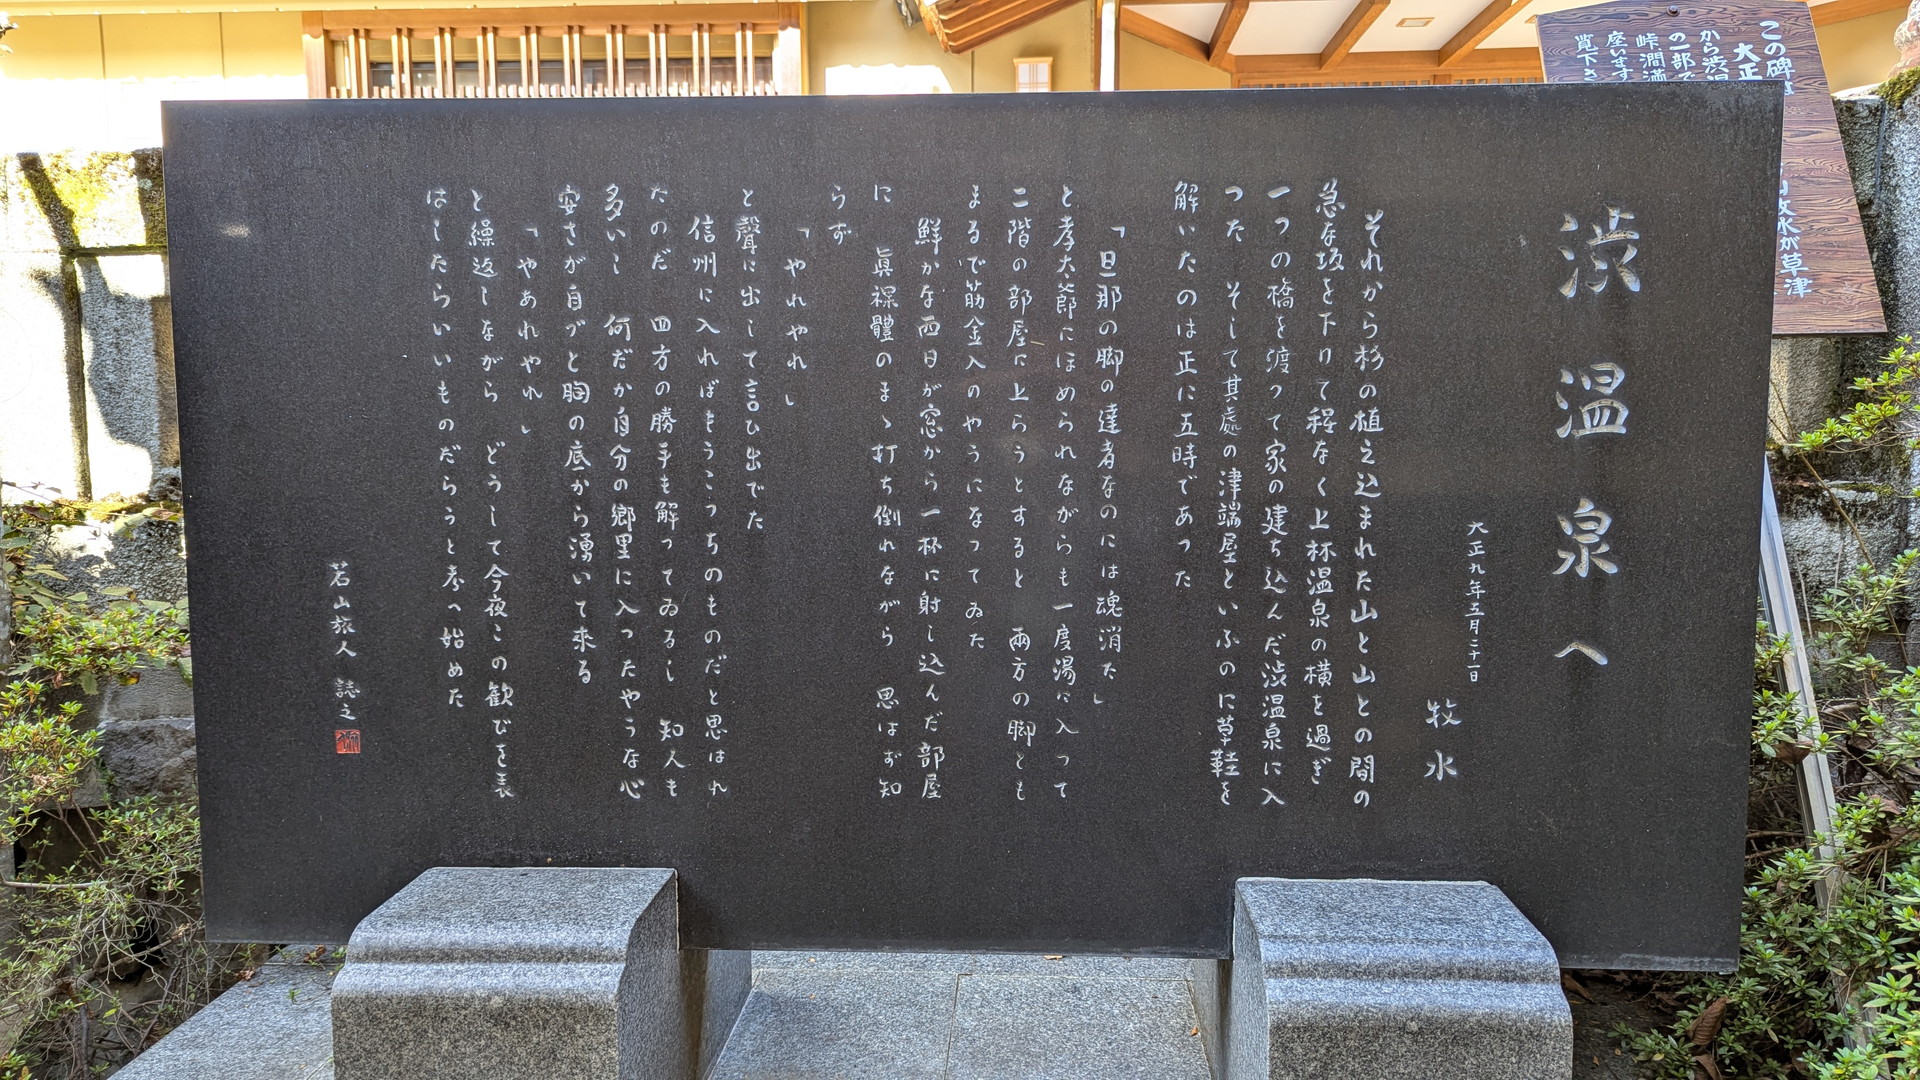 渋温泉へ
大正九年五月二十一日
牧水
それから杉の植え込まれた山と山との間の
急な坂を下りて程なく上林温泉の横を過ぎ
一つの橋を渡つて家の建ち込んだ渋温泉に入
つた そして其處の津端屋といふのに草鞋を
解いたのは正に五時であつた
「旦那の脚の達者なのには魂消た」
と孝太郎にほめられながらも一度湯に入つて
二階の部屋に上らうとすると 兩方の脚とも
まるで筋金入のやうになつてゐた
鮮かな西日が窓から一杯に射し込んだ部屋
に 眞裸體のまゝ打ち倒れながら 思はず知
らず
「やれやれ」
と聲に出して言ひ出でた
信州に入ればもうこつちのものだと思はれ
たのだ 四方の勝手も解つてゐるし 知人も
多いし 何だか自分の郷里に入つたやうな心
安さが自づと胸の底から湧いて来る
「やあれやれ」
と繰返しながら どうして今夜この歓びを表
はしたらいいものだらうと考へ始めた
若山旅人 誌之
この碑は
大正
から渋温
の一部で
峠澗満
座います
覧下さ
山牧水が草津